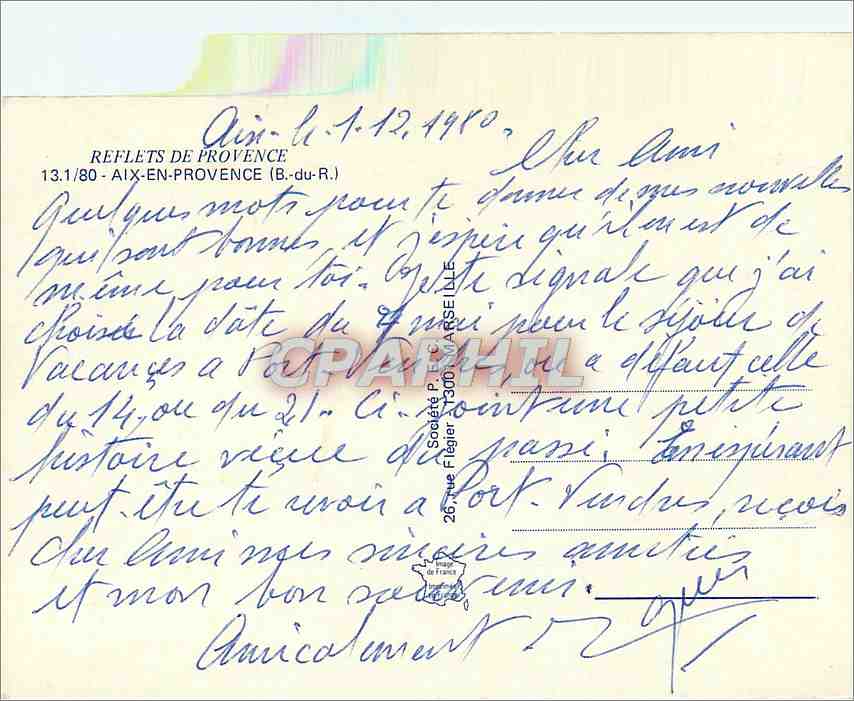 Aix - le 1-12, 1980.
REFLETS DE PROVENCE
13.1/80 - AIX-EN-PROVENCE (B.-du-R.)
Cher Ami
Quelques mots pour te donner de mes nouvelles
qui sont bonnes, et j'espère qu'il en est de
même pour toi. Je te signale que j'ai
choisi la dâte du 7 mai pour le séjour de
Vacances a Port-Vendres, ou a défaut celle
du 14, ou du 21. Ci-joint une petite
histoire vécue du passé. En espérant
peut-être te revoir a Port-Vendres, reçois
cher Ami mes sincères amitiés
et mon bon souvenir.
Amicalement
Société P. E. C.
26, rue Flégier - 13001 MARSEILLE
Image
de France
Imprimée
en France
CPARPHIL